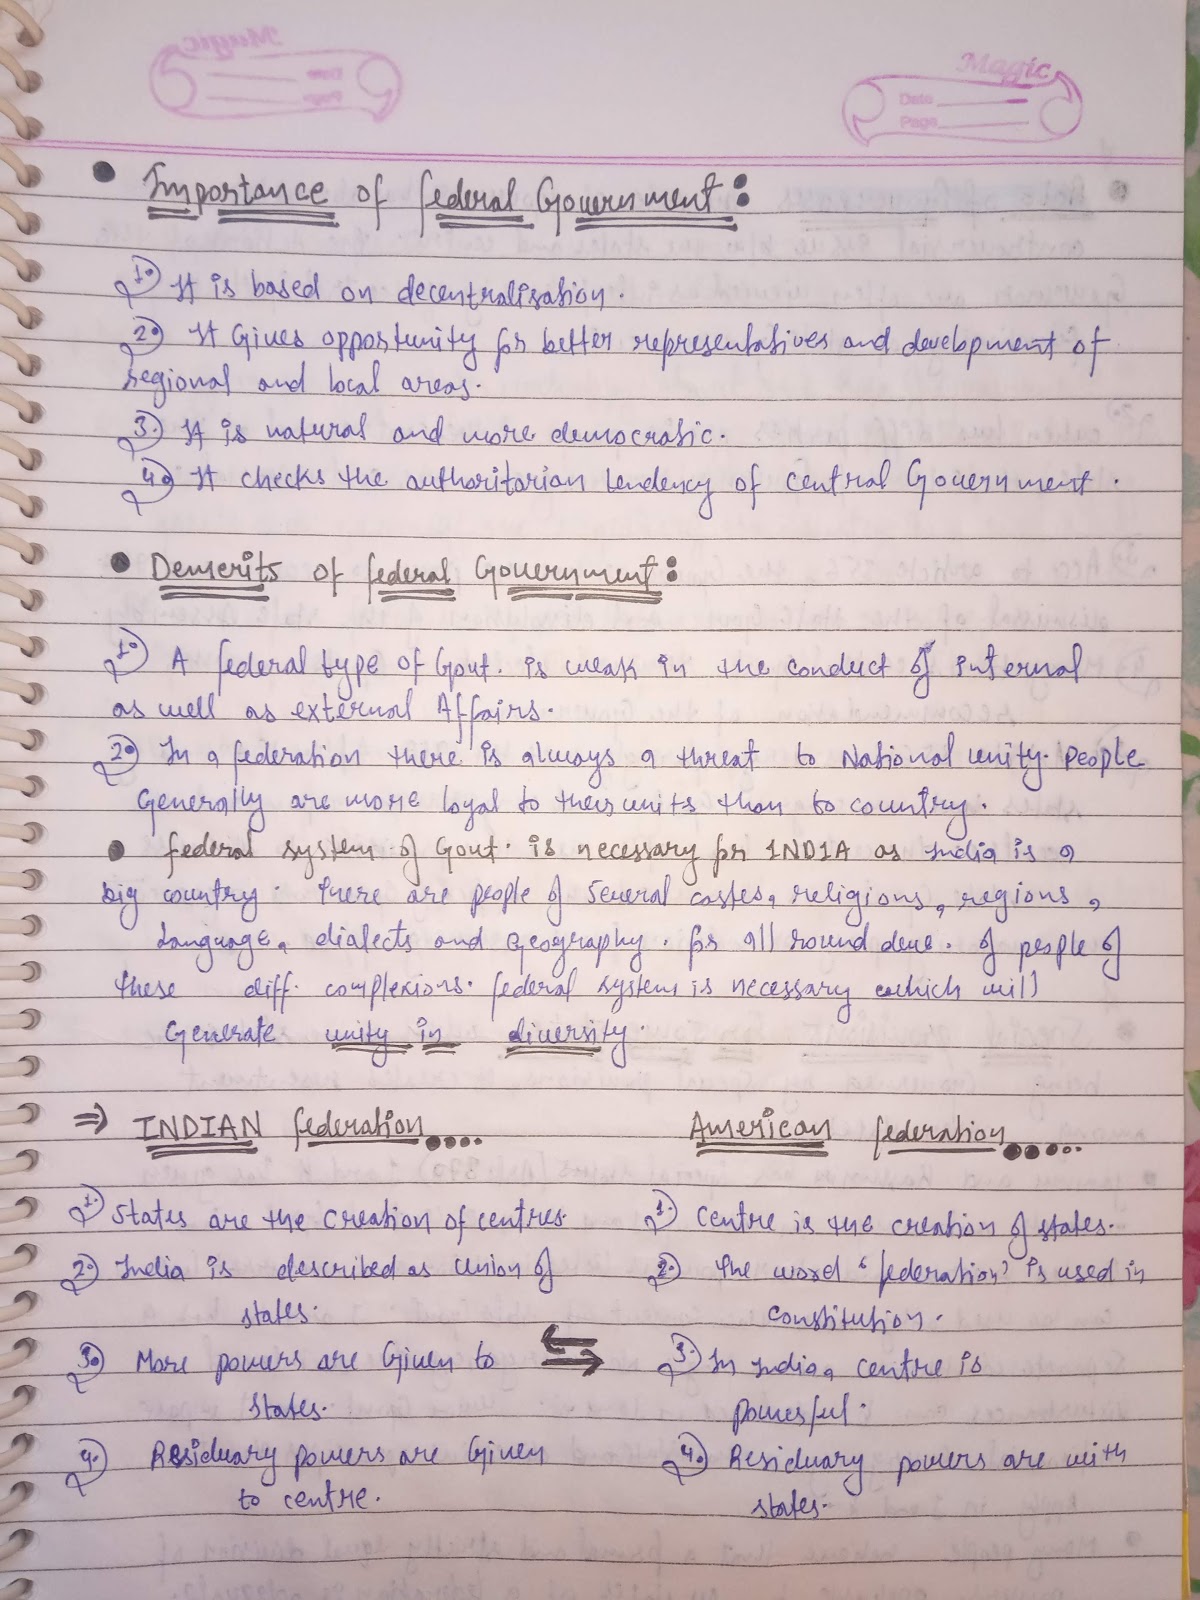 Magic
Date
Page
• Importance of federal Government:
1. It is based on decentralisation.
2. It Gives opportunity for better representatives and development of
regional and local areas.
3. It is natural and more democratic.
4. It checks the authoritarian tendency of central Government.
• Demerits of federal Government:
1. A federal type of Govt. is weak in the conduct of internal
as well as external Affairs.
2. In a federation there is always a threat to National unity. people
Generally are more loyal to their units than to country.
• federal system of Govt. is necessary for INDIA as India is a
big country. There are people of several castes, religions, regions,
Language, dialects and Geography. for all round deve. of people of
these diff. complexions. federal system is necessary which will
Generate unity in diversity.
⇒ INDIAN federation..... American federation.....
1. States are the creation of centres. 1. Centre is the creation of states.
2. India is described as Union of 2. The word 'federation' is used in
states. constitution.
3. More powers are Given to ⇆ 3. In India, centre is
states. powerful.
4. Residuary powers are Given 4. Residuary powers are with
to centre. states.